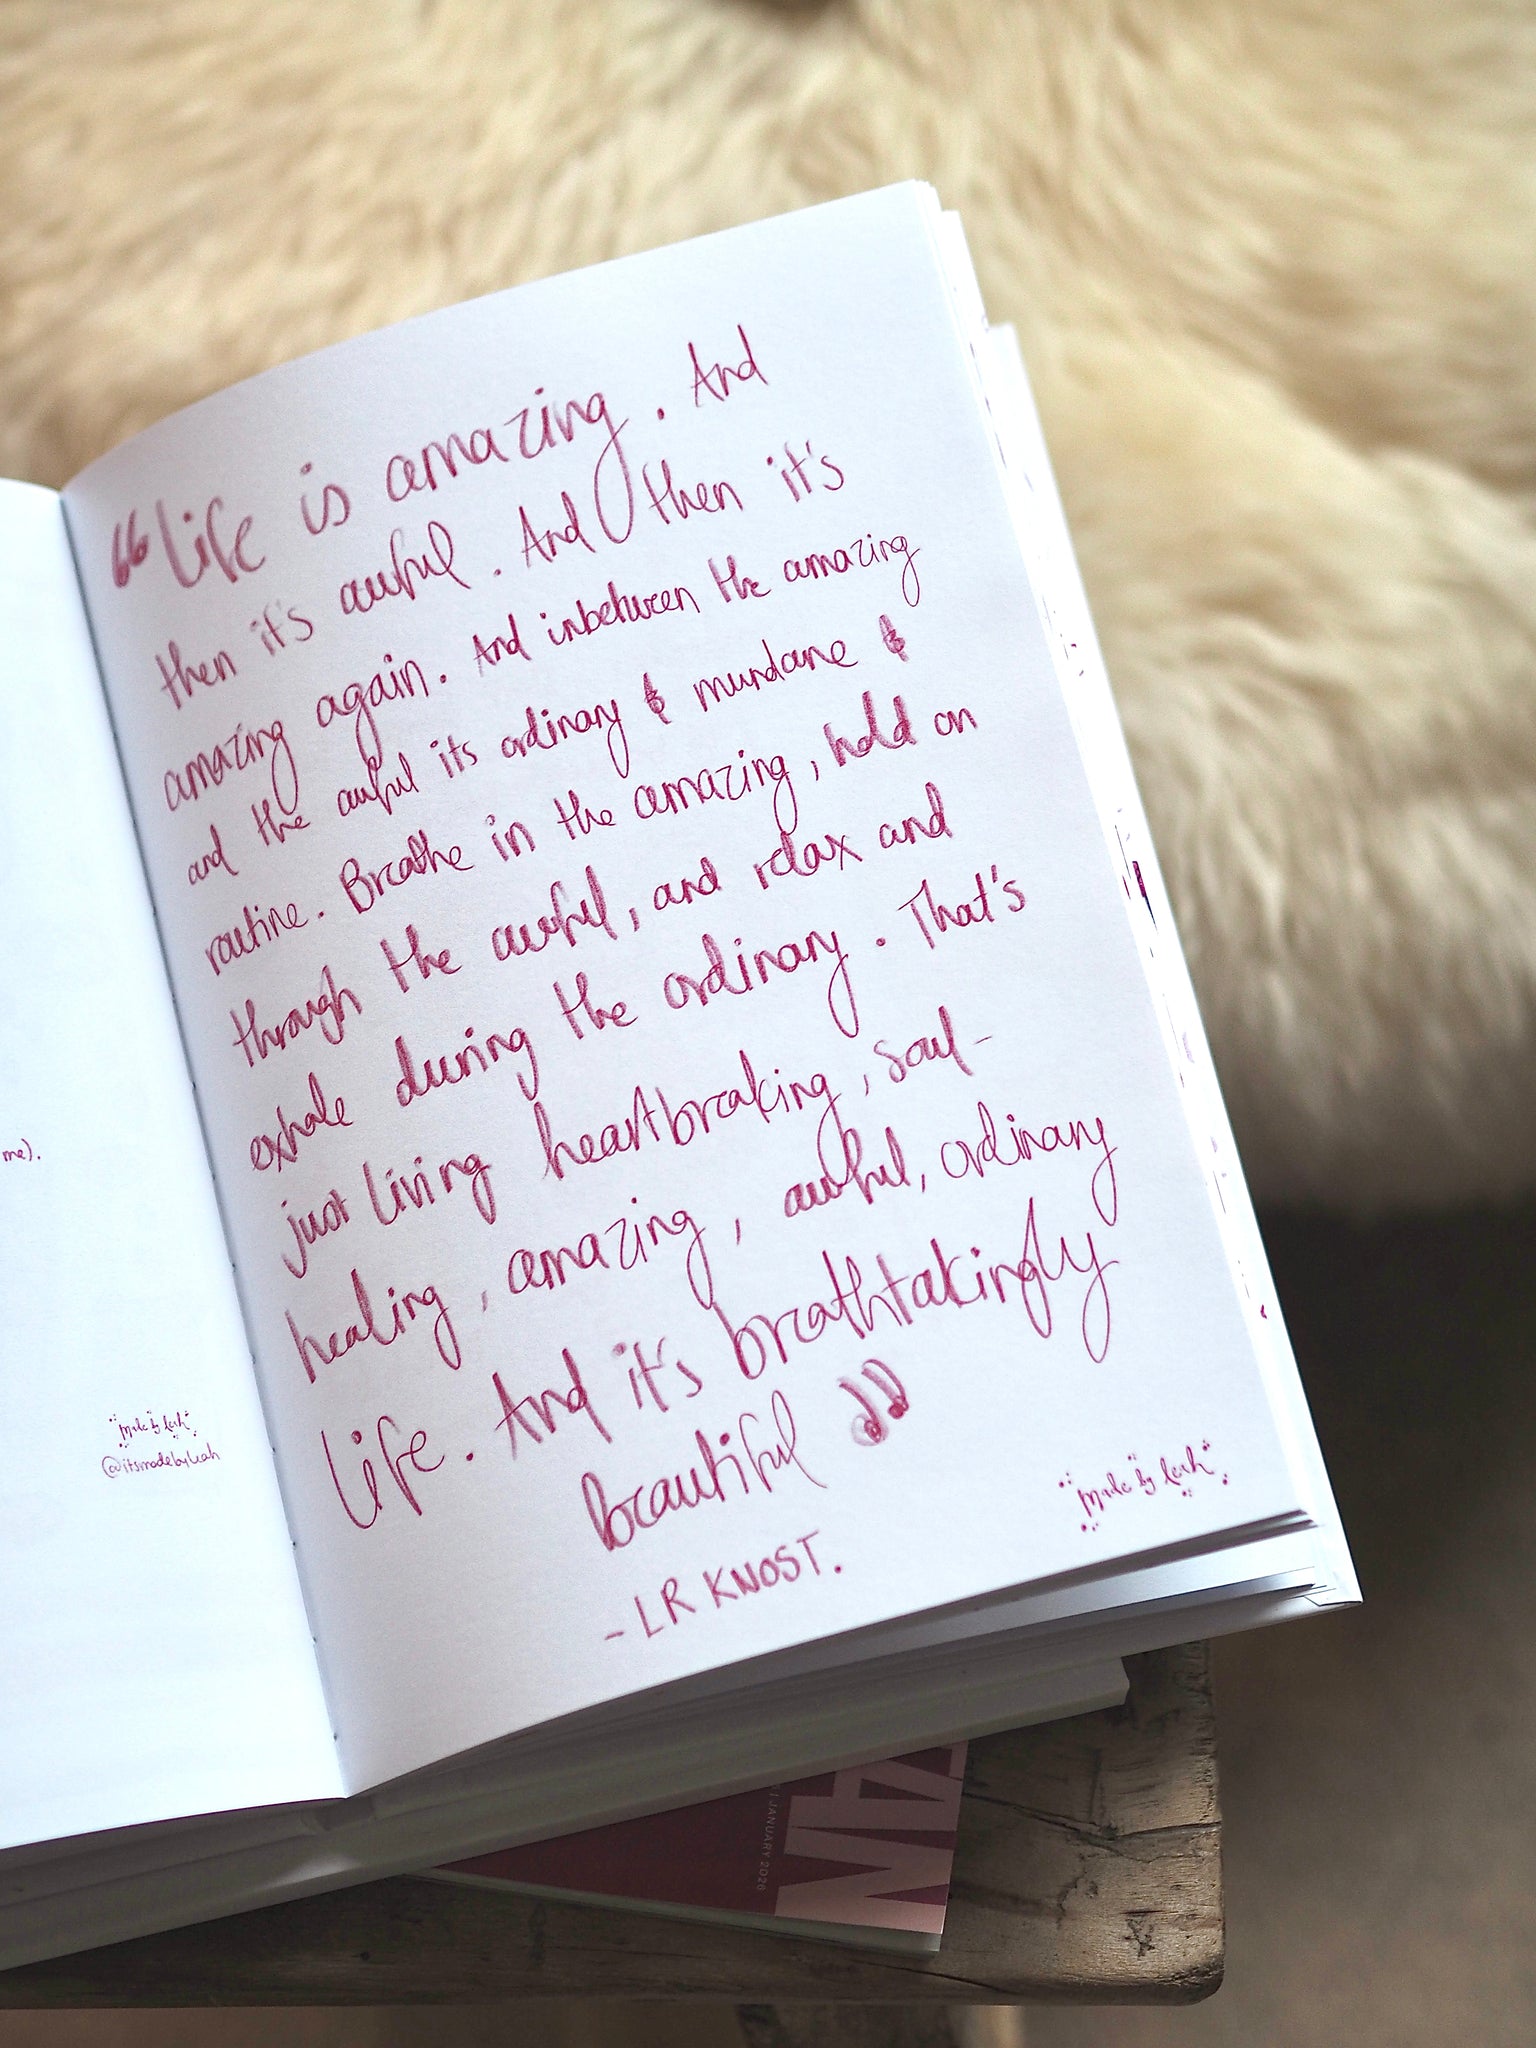 me).
made by leah
@itsmadebyleah
"Life is amazing. And
then it's awful. And then it's
amazing again. And inbetween the amazing
and the awful its ordinary & mundane &
routine. Breathe in the amazing, hold on
through the awful, and relax and
exhale during the ordinary. That's
just living heartbreaking, soul-
healing, amazing, awful, ordinary
life. And it's breathtakingly
beautiful"
- LR KNOST.
made by leah
JANUARY 2026